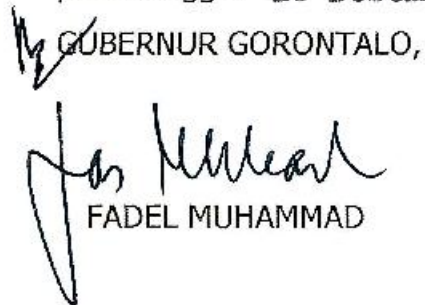 GUBERNUR GORONTALO,
FADEL MUHAMMAD